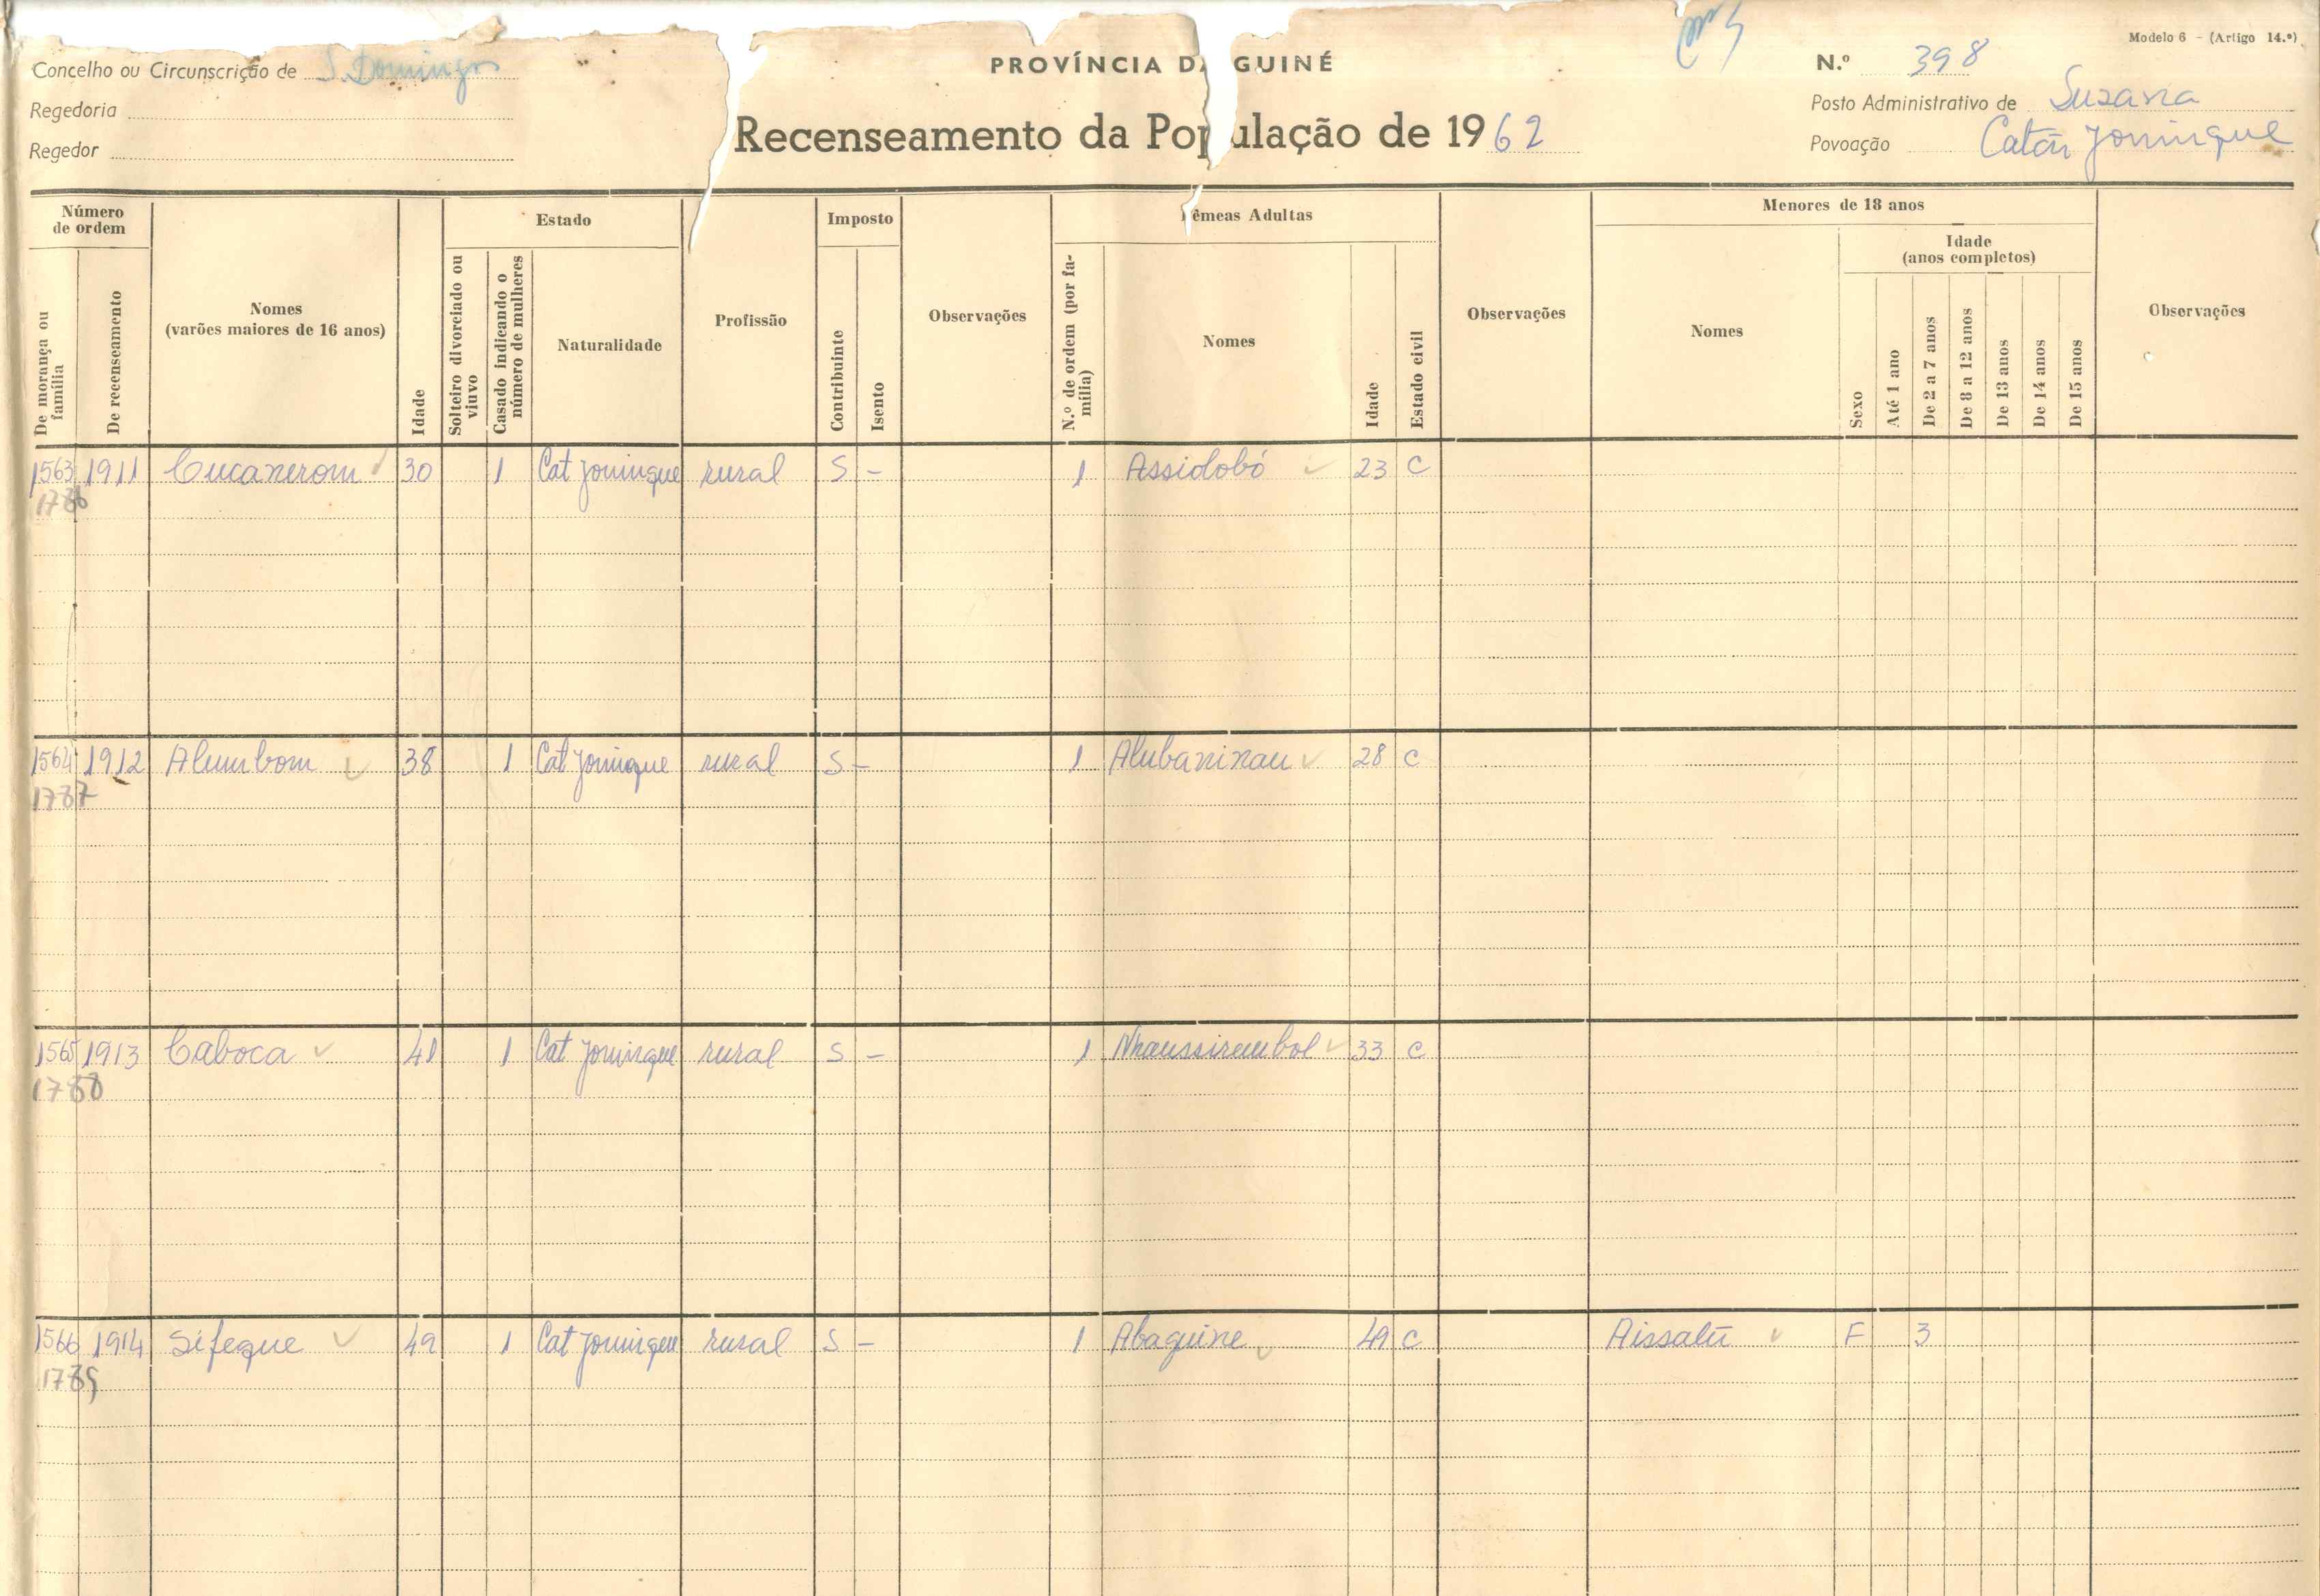 Modelo 6 - (Artigo 14.º)
Concelho ou Circunscrição de S. Domingos
PROVÍNCIA DA GUINÉ
N.º 398
Regedoria
Posto Administrativo de Suzana
Regedor
Recenseamento da População de 1962
Povoação Catão Jominque
Número de ordem
De morança ou família
De recenseamento
Nomes
(varões maiores de 16 anos)
Idade
Estado
Solteiro divorciado ou viuvo
Casado indicando o número de mulheres
Naturalidade
Profissão
Imposto
Contribuinte
Isento
Observações
Fêmeas Adultas
N.º de ordem (por família)
Nomes
Idade
Estado civil
Observações
Menores de 18 anos
Nomes
Sexo
Idade
(anos completos)
Até 1 ano
De 2 a 7 anos
De 8 a 12 anos
De 13 anos
De 14 anos
De 15 anos
Observações
1563 1911 Cucanerom 30 1 Cat Jominque rural S - 1 Assidobó 23 C
1786
1564 1912 Alumbom 38 1 Cat Jominque rural S - 1 Alubaninau 28 C
1787
1565 1913 Caboca 41 1 Cat Jominque rural S - 1 Nhaussirembol 33 C
1788
1566 1914 Sifeque 49 1 Cat Jominque rural S - 1 Abaguine 49 C Aissatú F 3
1789